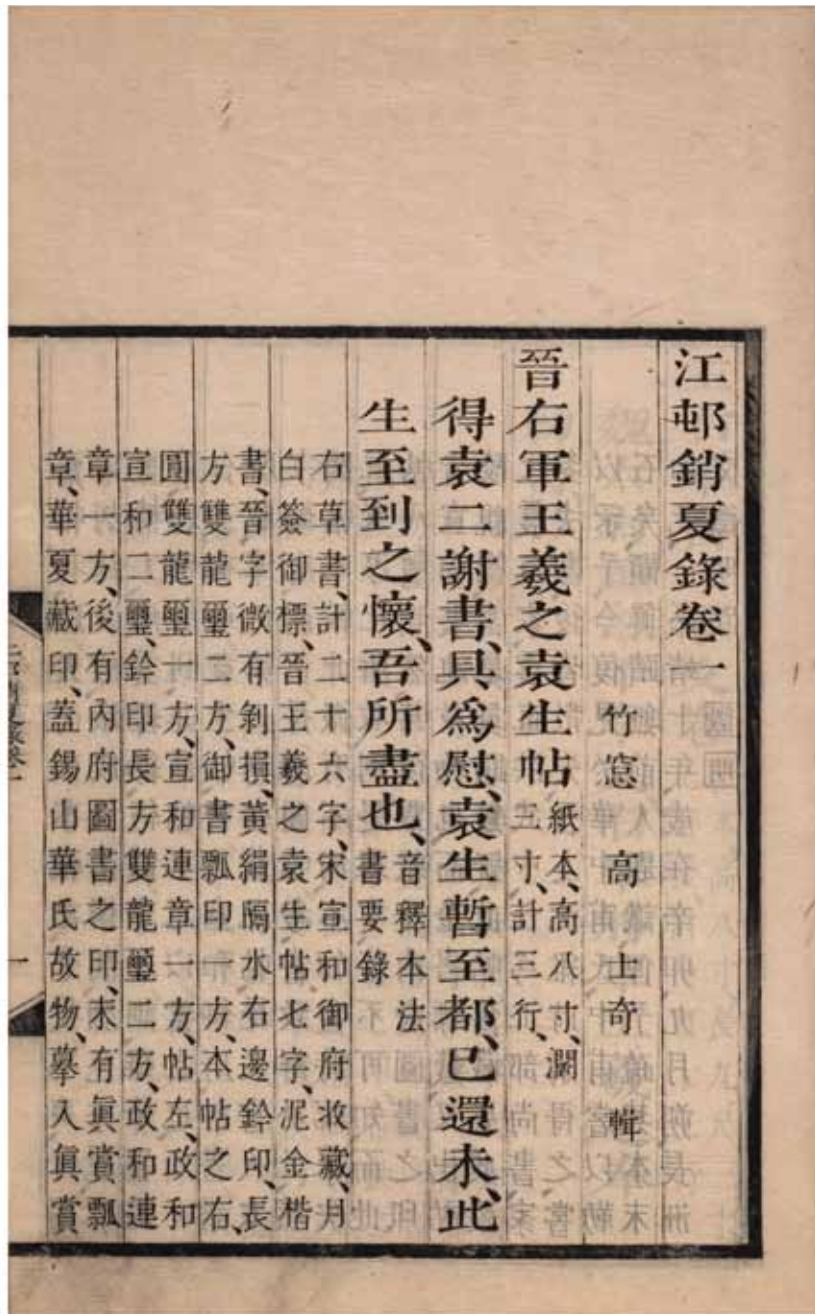 江邨銷夏錄卷一
竹窓 高士奇 輯
晉右軍王羲之袁生帖紙本、高八寸、濶
三寸、計三行、
得袁二謝書、具爲慰、袁生暫至都、已還未、此
生至到之懷、吾所盡也、音釋本法
書要錄
右草書、計二十六字、宋宣和御府收藏、月
白簽御標、晉王羲之袁生帖七字、泥金楷
書、晉字微有剝損、黃絹隔水右邊鈐印、長
方雙龍璽二方、御書瓢印一方、本帖之右、
圓雙龍璽一方、宣和連章一方、帖左、政和
宣和二璽、鈐印長方雙龍璽二方、政和連
章一方、後有內府圖書之印、末有眞賞瓢
章、華夏藏印、蓋錫山華氏故物、摹入眞賞
一